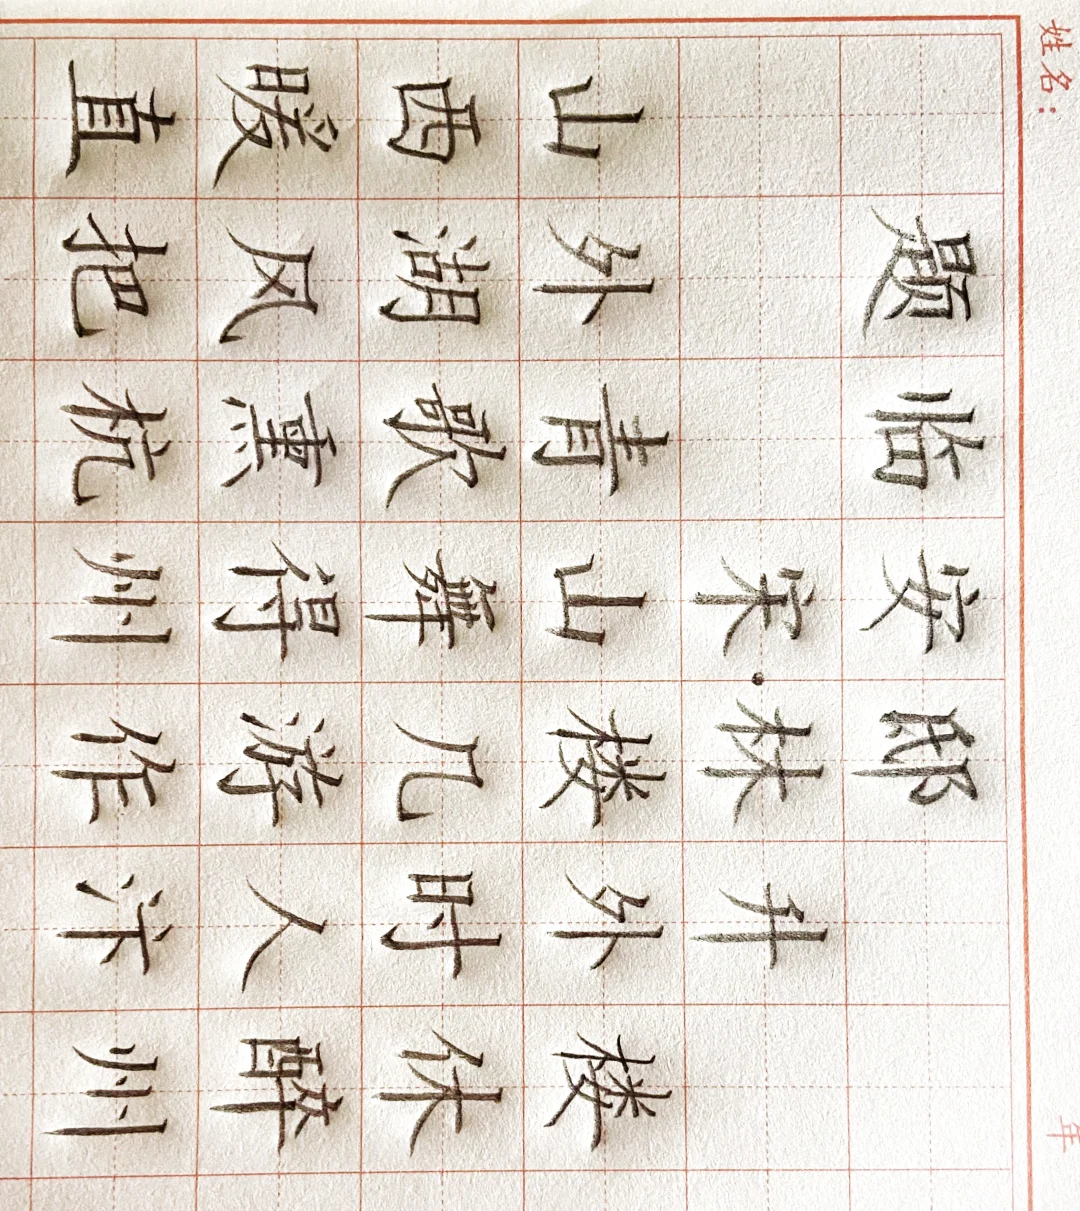 姓名：
题临安邸
宋·林升
山外青山楼外楼
西湖歌舞几时休
暖风熏得游人醉
直把杭州作汴州
年